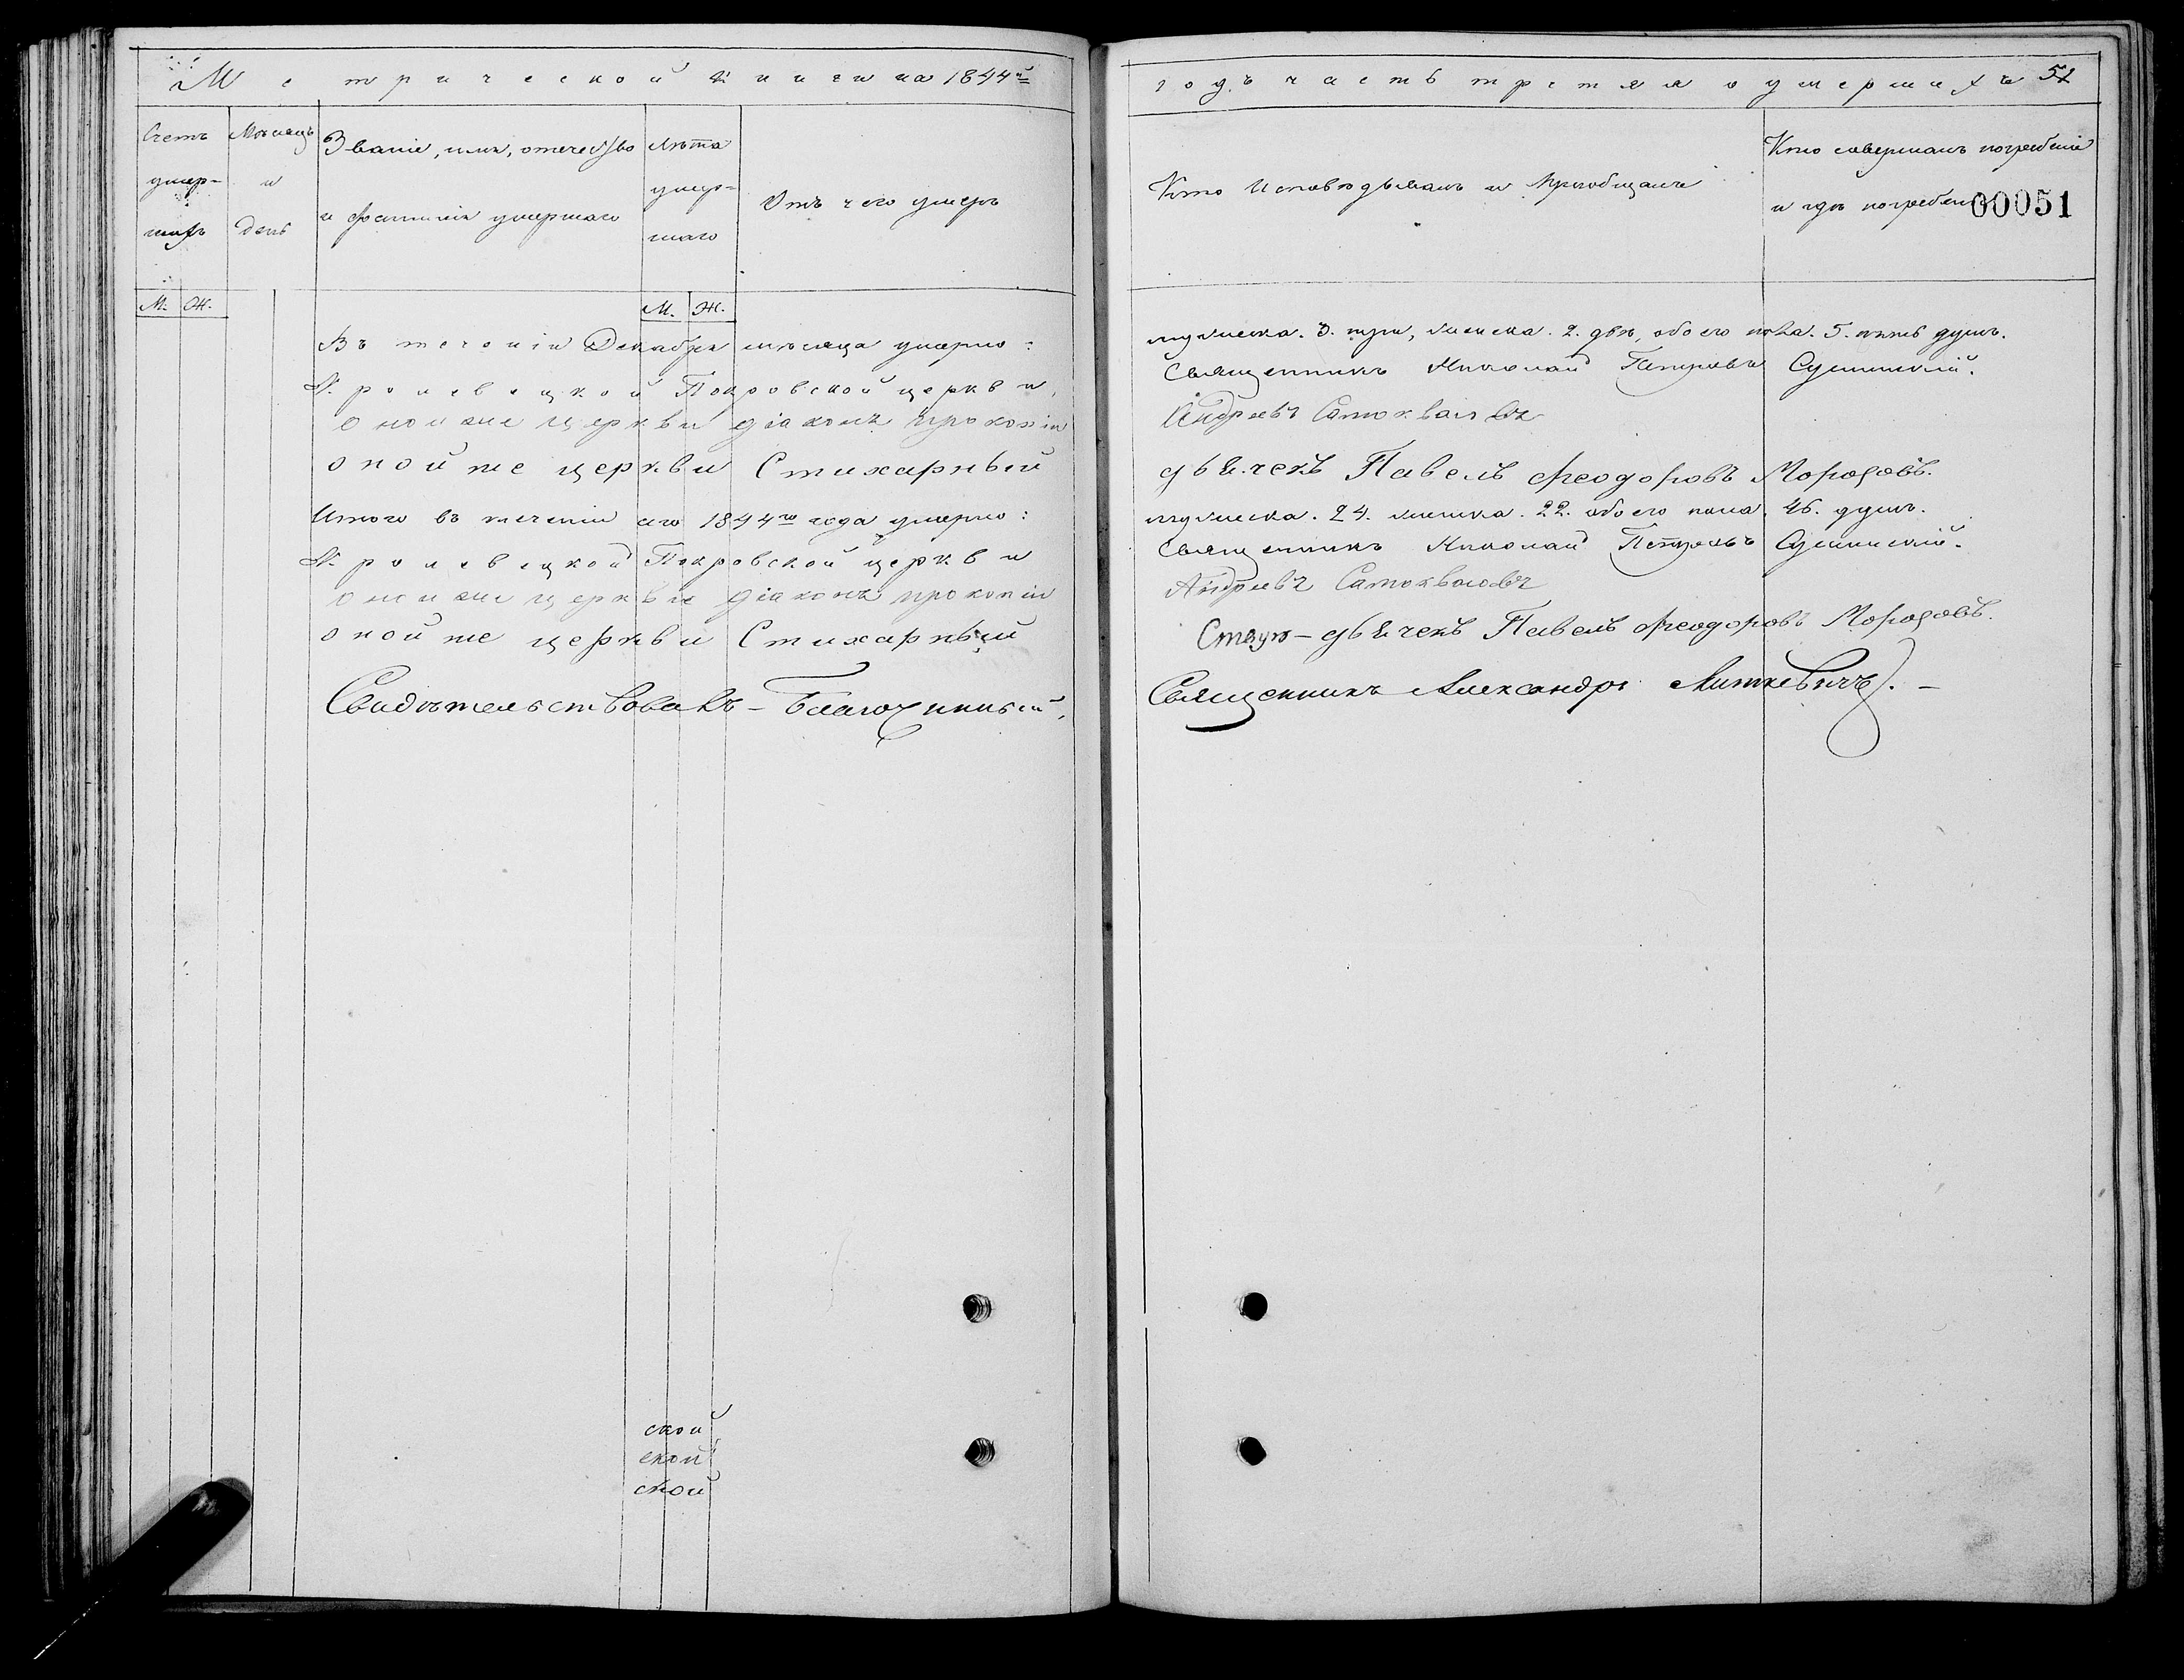 Метрической книги на 1844й
годъ часть третія о умершихъ 51
Счетъ умер-шихъ
Мѣсяцъ и день
Званіе, имя, отечество и фамилія умершаго
Лѣта умер-шаго
Отъ чего умеръ
Кто исповѣдывалъ и пріобщалъ
Кто совершалъ погребеніе и гдѣ погребены
00051
М. Ж. М. Ж.
Въ теченіи Декабря мѣсяца умерло: мужеска. 3. три, женска. 2. двѣ, обоего пола. 5. пять душъ.
Кролевецкой Покровской церкви, Священникъ Николай Петровъ Сушинскій.
оной же церкви діаконъ Прокопій Андреевъ Самоквасовъ
оной же церкви Стихарный дьячекъ Павелъ Феодоровъ Морозовъ.
Итого въ теченіи сего 1844го года умерло: мужеска. 24. женска. 22. обоего пола. 46. душъ.
Кролевецкой Покровской церкви Священникъ Николай Петровъ Сушинскій.
оной же церкви діаконъ Прокопій Андреевъ Самоквасовъ
оной же церкви Стихарный дьячекъ Павелъ Феодоровъ Морозовъ.
Свидѣтельствовалъ - Благочинный, Священникъ Александръ Литкевичъ. -
ской
ской
ской